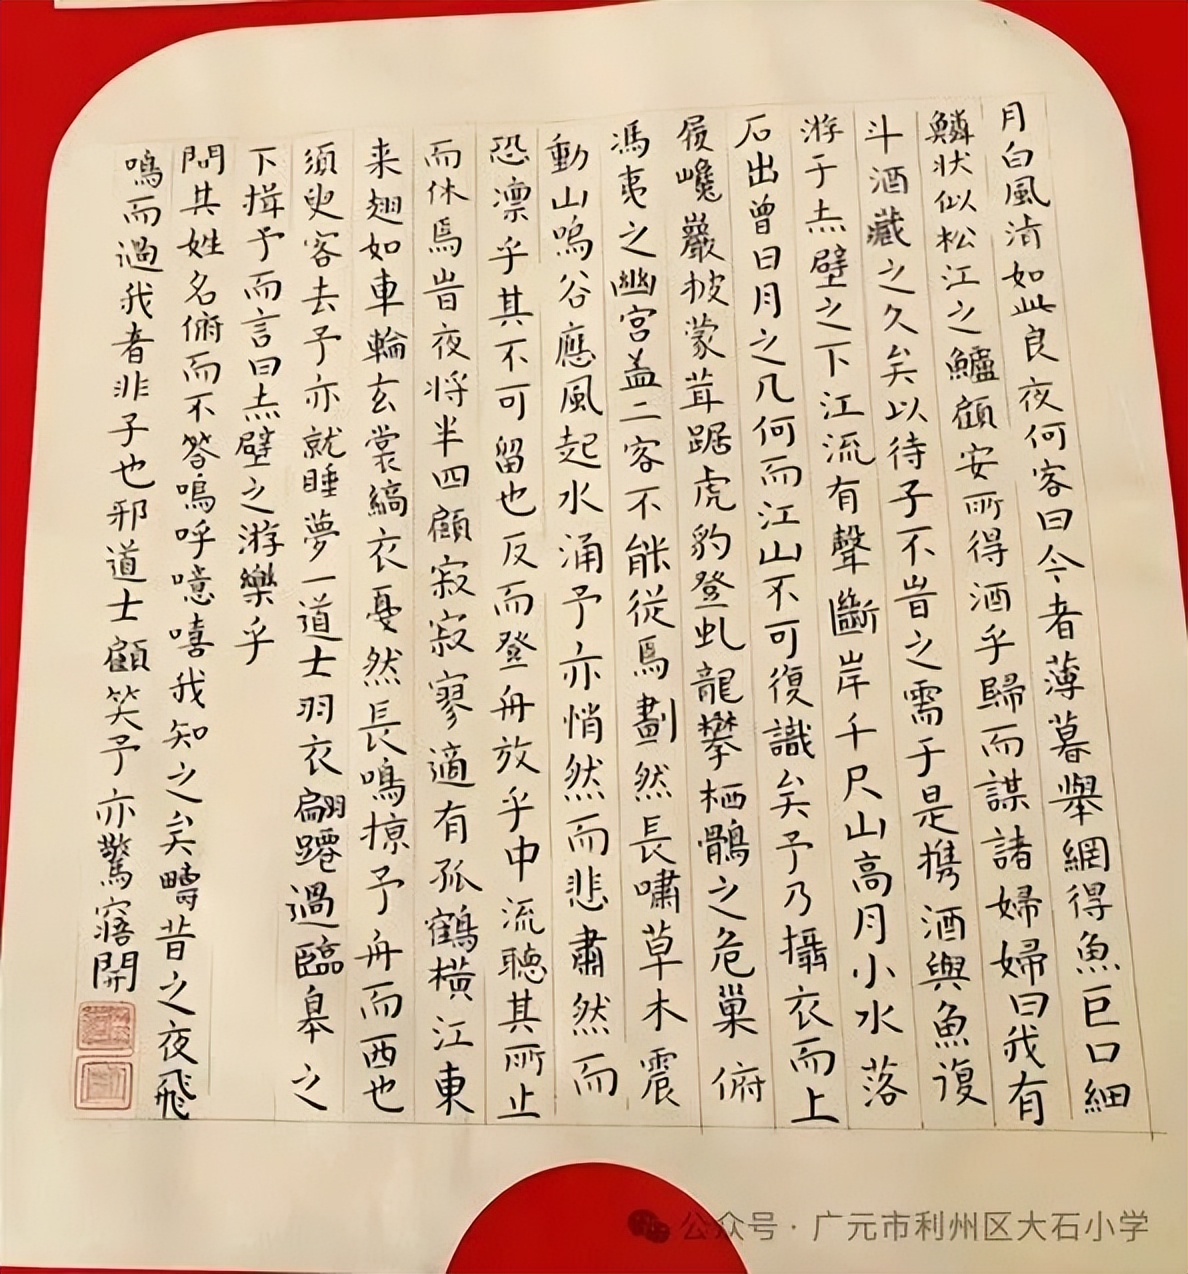 月白風清如此良夜何客曰今者薄暮舉網得魚巨口細
鱗狀似松江之鱸顧安所得酒乎歸而謀諸婦婦曰我有
斗酒藏之久矣以待子不旹之需于是携酒與魚復
游于赤壁之下江流有聲斷岸千尺山高月小水落
石出曾日月之几何而江山不可復識矣予乃攝衣而上
履巉巖披蒙茸踞虎豹登虬龍攀栖鶻之危巢俯
馮夷之幽宮盖二客不能從焉劃然長嘯草木震
動山鳴谷應風起水涌予亦悄然而悲肅然而
恐凛乎其不可留也反而登舟放乎中流聽其所止
而休焉旹夜将半四顧寂寂寥適有孤鶴橫江東
来翅如車輪玄裳縞衣戛然長鳴掠予舟而西也
須臾客去予亦就睡夢一道士羽衣翩躚過臨皋之
下揖予而言曰赤壁之游樂乎
問其姓名俯而不答嗚呼噫嘻我知之矣疇昔之夜飛
鳴而過我者非子也邪道士顧笑予亦驚寤開
公众号·广元市利州区大石小学